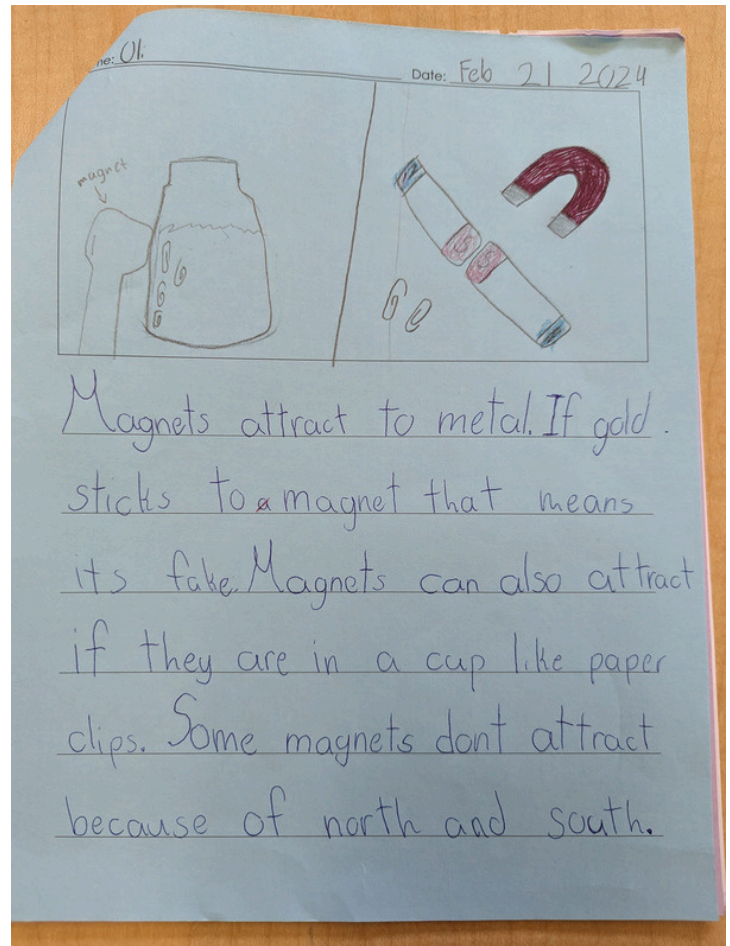 ne: Ol.
Date: Feb 21 2024
magnet
N
S
S
N
Magnets attract to metal. If gold.
sticks to a magnet that means
its fake. Magnets can also attract
if they are in a cup like paper
clips. Some magnets dont attract
because of north and south.